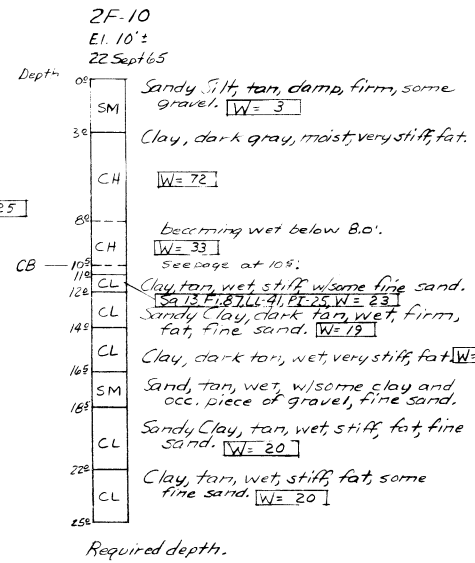 2F-10
El. 10'±
22 Sept 65
Depth
0⁰
SM
Sandy Silt, tan, damp, firm, some
gravel. W = 3
3⁰
Clay, dark gray, moist, very stiff, fat.
CH
W = 72
25
8⁰
becoming wet below 8.0'.
CH
W = 33
CB
10⁵
seepage at 10⁵.
11⁰
CL
Clay, tan, wet, stiff w/some fine sand.
12⁰
Sa 13, Fi. 87, LL-41, PI-25, W = 23
CL
Sandy Clay, dark tan, wet, firm,
fat, fine sand. W = 19
14⁰
CL
Clay, dark tan, wet, very stiff, fat. W=
16⁵
SM
Sand, tan, wet, w/some clay and
occ. piece of gravel, fine sand.
18⁵
CL
Sandy Clay, tan, wet, stiff, fat, fine
sand. W = 20
22⁰
CL
Clay, tan, wet, stiff, fat, some
fine sand. W = 20
25⁰
Required depth.